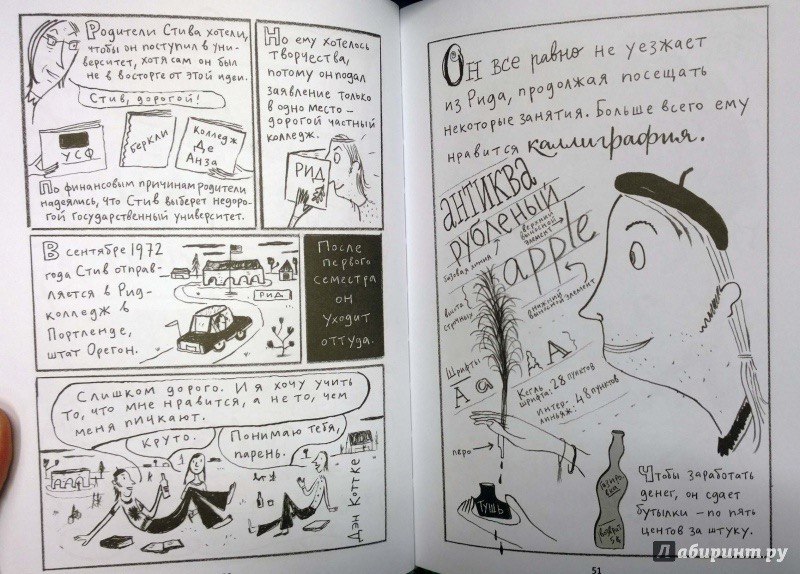 Родители Стива хотели,
чтобы он поступил в уни-
верситет, хотя сам он был
не в восторге от этой идеи.
Стив, дорогой!
УСФ
Беркли
Колледж
Де
Анза
По финансовым причинам родители
надеялись, что Стив выберет недоро-
гой государственный университет.
Но ему хотелось
творчества,
потому он подал
заявление только
в одно место –
дорогой частный
колледж.
РИД
В сентябре 1972
года Стив отправ-
ляется в Рид-
колледж в
Портленде,
штат Орегон.
РИД
После
первого
семестра
он
уходит
оттуда.
Слишком дорого. И я хочу учить
то, что мне нравится, а не то, чем
меня пичкают.
Круто.
Понимаю тебя,
парень.
Дэн Коттке
Он все равно не уезжает
из Рида, продолжая посещать
некоторые занятия. Больше всего ему
нравится каллиграфия.
антиква
рубленый
базовая линия
верхний
выносной
элемент
apple
высота
строчных
нижний
выносной элемент
Шрифты
А а А А
Кегль
шрифта: 28 пунктов
Интер-
линьяж: 48 пунктов
перо
Тушь
возврат
5¢
Чтобы заработать
денег, он сдает
бутылки – по пять
центов за штуку.
51
Лабиринт.ру